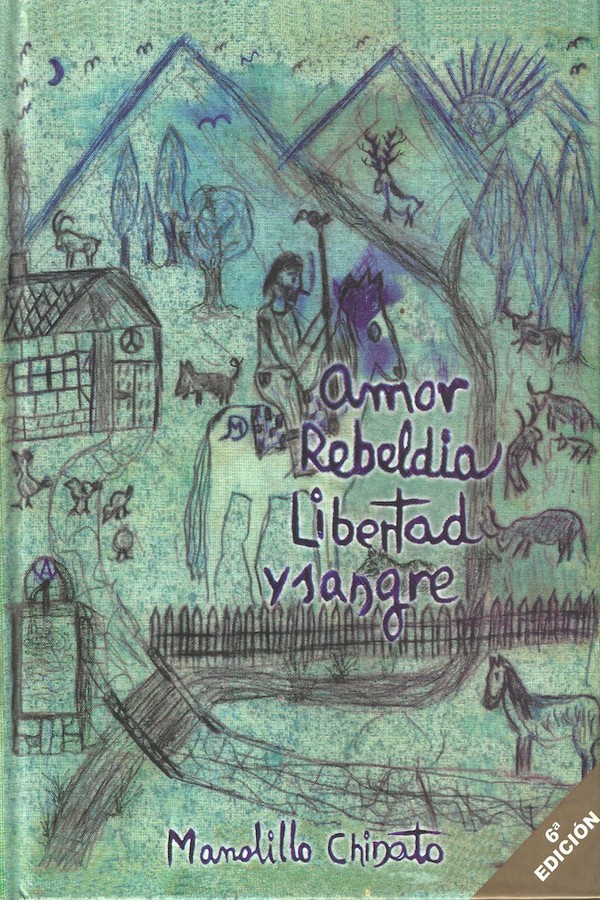 Amor
Rebeldia
Libertad
y sangre
Manolillo Chinato
6ª
EDICIÓN
M
A